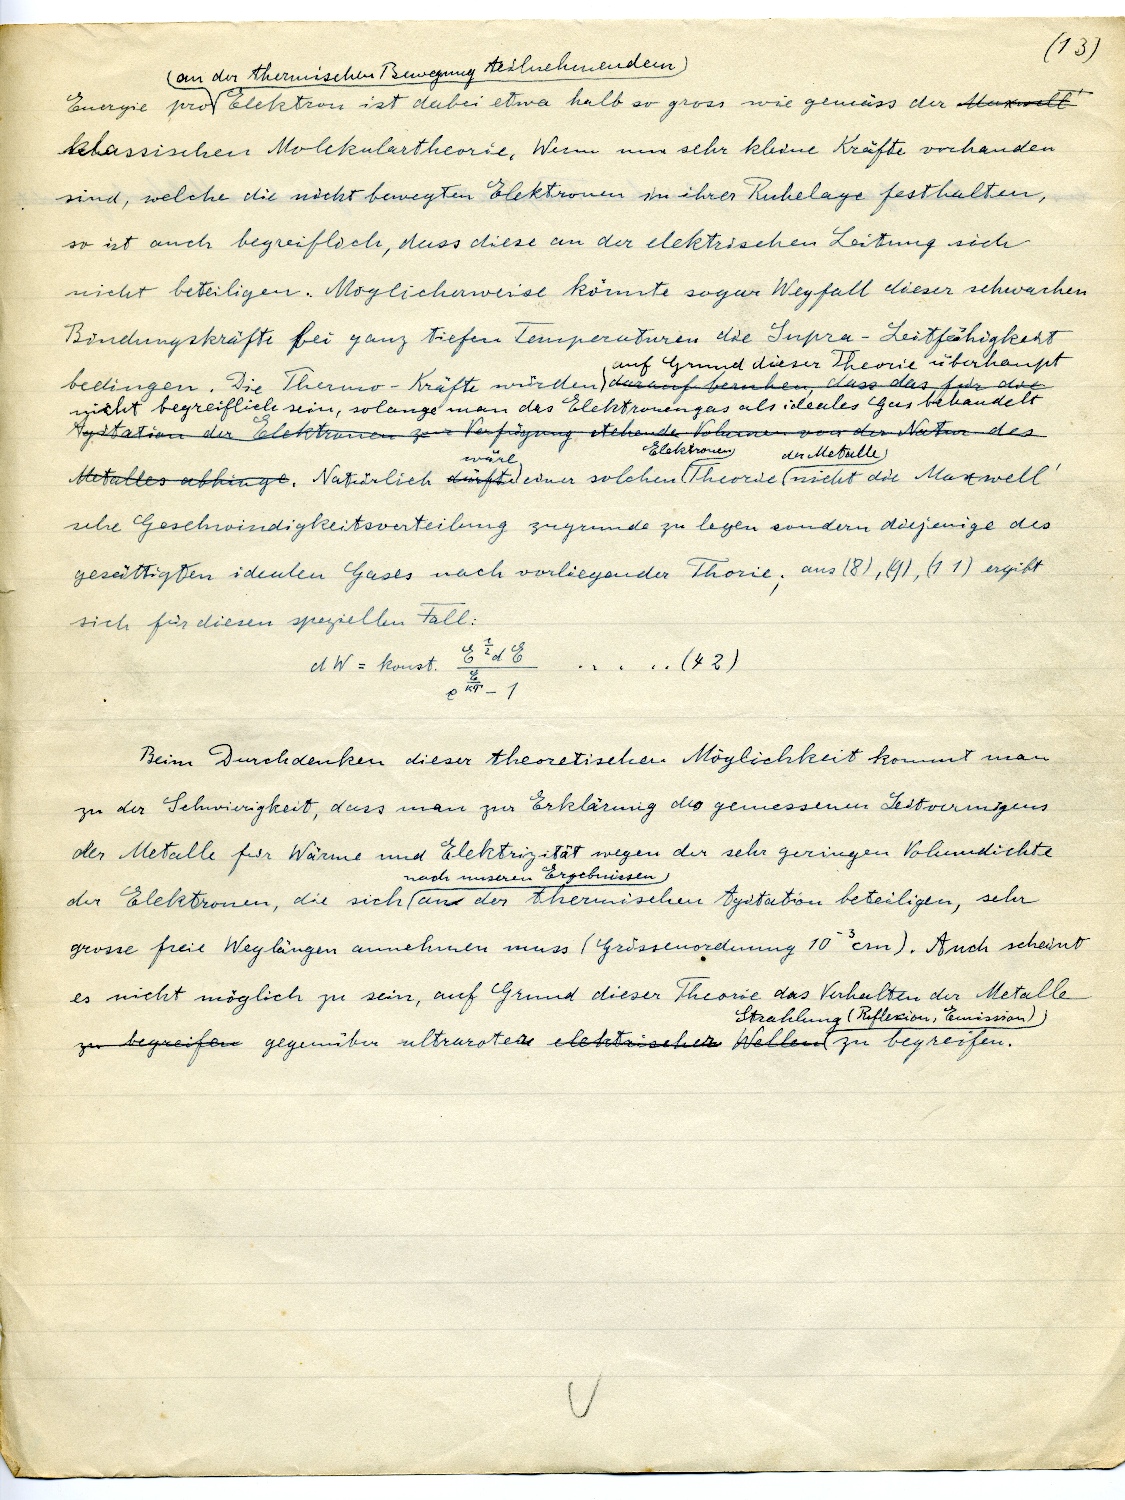 (13)
(an der thermischen Bewegung teilnehmendem)
Energie pro Elektron ist dabei etwa halb so gross wie gemäss der Maxwell'
klassischen Molekulartheorie. Wenn nun sehr kleine Kräfte vorhanden
sind, welche die nicht bewegten Elektronen in ihrer Ruhelage festhalten,
so ist auch begreiflich, dass diese an der elektrischen Leitung sich
nicht beteiligen. Möglicherweise könnte sogar Wegfall dieser schwachen
Bindungskräfte bei ganz tiefen Temperaturen die Supra-Leitfähigkeit
auf Grund dieser Theorie überhaupt
bedingen. Die Thermo-Kräfte würden darauf beruhen, dass das für die
nicht begreiflich sein, solange man das Elektronengas als ideales Gas behandelt
Agitation der Elektronen zur Verfügung stehende Volumen von der Natur des
wäre Elektronen der Metalle
Metalles abhinge. Natürlich dürfte einer solchen Theorie nicht die Maxwell'
sche Geschwindigkeitsverteilung zugrunde zu legen sondern diejenige des
gesättigten idealen Gases nach vorliegender Thorie; aus (8), (9), (11) ergibt
sich für diesen speziellen Fall:
dW = konst. E^{1/2} dE / (e^{E/kT} - 1) .. . .. (42)
Beim Durchdenken dieser theoretischen Möglichkeit kommt man
zu der Schwierigkeit, dass man zur Erklärung des gemessenen Leitvermögens
der Metalle für Wärme und Elektrizität wegen der sehr geringen Volumdichte
nach unseren Ergebnissen
der Elektronen, die sich an der thermischen Agitation beteiligen, sehr
grosse freie Weglängen annehmen muss (Grössenordnung 10^{-3} cm). Auch scheint
es nicht möglich zu sein, auf Grund dieser Theorie das Verhalten der Metalle
Strahlung (Reflexion, Emission)
zu begreifen gegenüber ultraroter elektrischer Wellen zu begreifen.